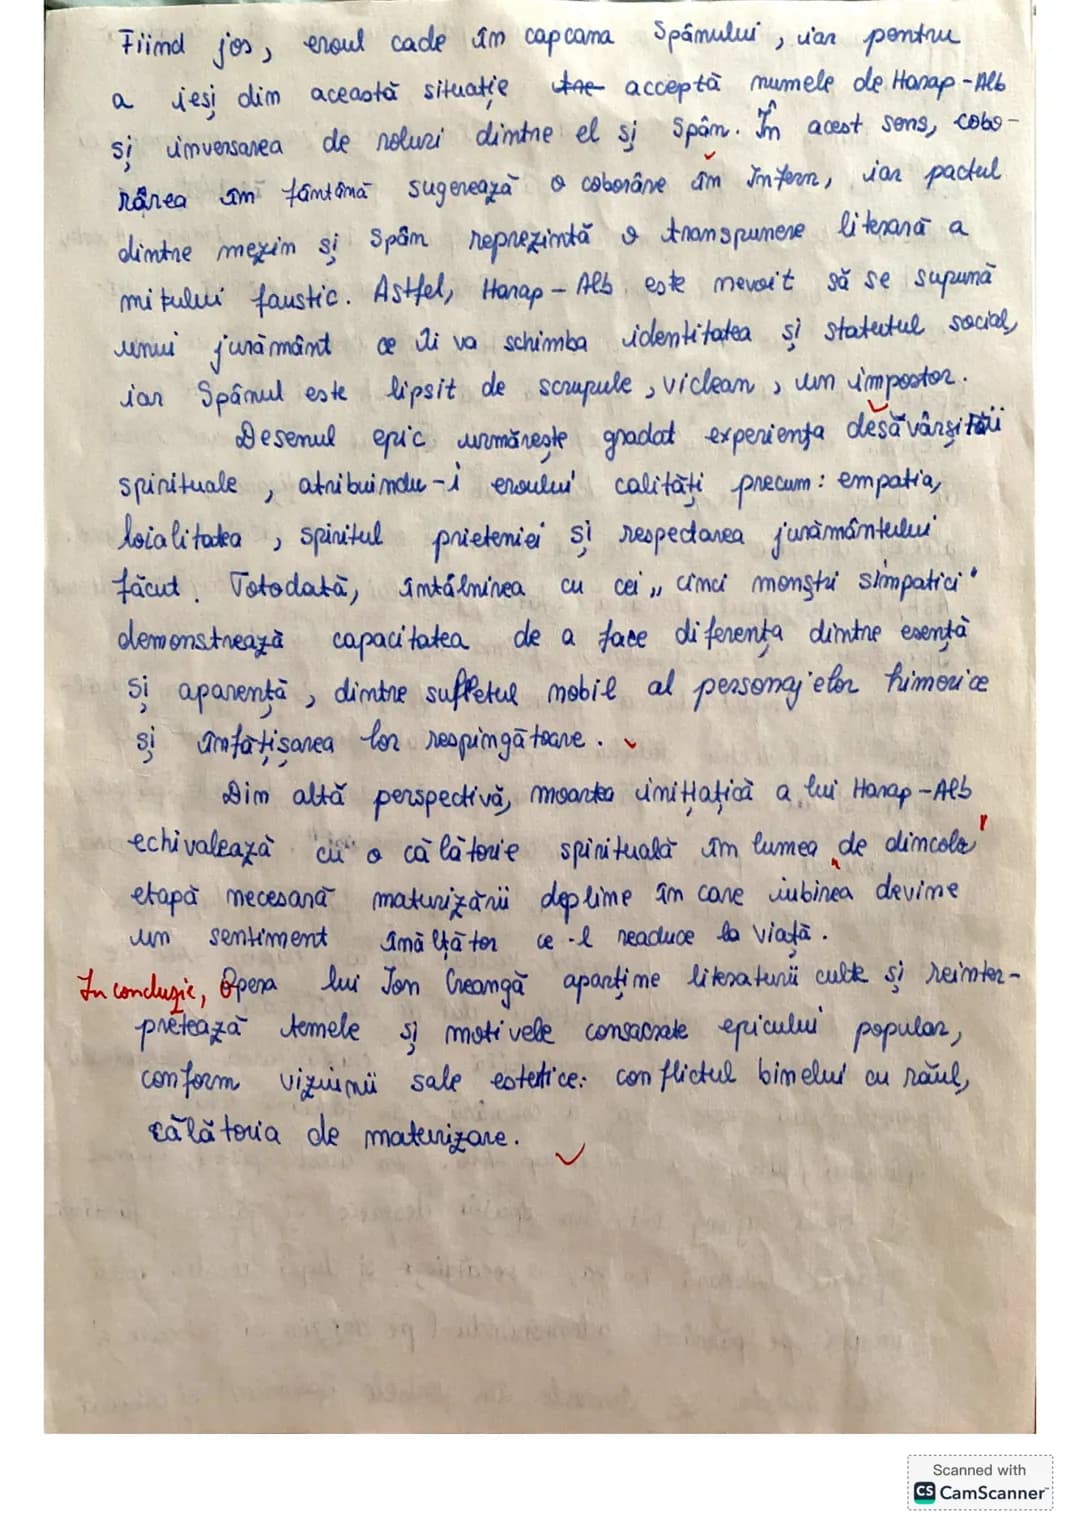 Fiind jos, eroul cade în capcana Spânului, iar pentru
a ieși din această situație acceptă numele de Harap-Alb
și inversarea de roluri dintre el și Spân. În acest sens, cobo-
rârea în fântână sugerează o coborâre în Infern, iar pactul
dintre mezin și Spân reprezintă o transpunere literară a
mitului faustic. Astfel, Harap-Alb este nevoit să se supună
unui jurământ ce îi va schimba identitatea și statutul social,
iar Spânul este lipsit de scrupule, viclean, un impostor.
Desenul epic urmărește gradat experiența desăvârșității
spirituale, atribuindu-i eroului calități precum: empatia,
loialitatea, spiritul prieteniei și respectarea jurământului
făcut. Totodată, întâlnirea cu cei „cinci monștri simpatici"
demonstrează capacitatea de a face diferența dintre esență
și aparență, dintre sufletul nobil al personajelor himerice
și înfățișarea lor respingătoare.
Din altă perspectivă, moartea inițiatică a lui Harap-Alb
echivalează cu o călătorie spirituală în lumea „de dincolo"
etapă necesară maturizării depline în care iubirea devine
un sentiment înălțător ce-l readuce la viață.
In concluzie, Opera lui Ion Creangă aparține literaturii culte și reinter-
pretează temele și motivele consacrate epicului popular,
conform viziunii sale estetice: conflictul binelui cu răul,
călătoria de maturizare.
Scanned with
CS CamScanner